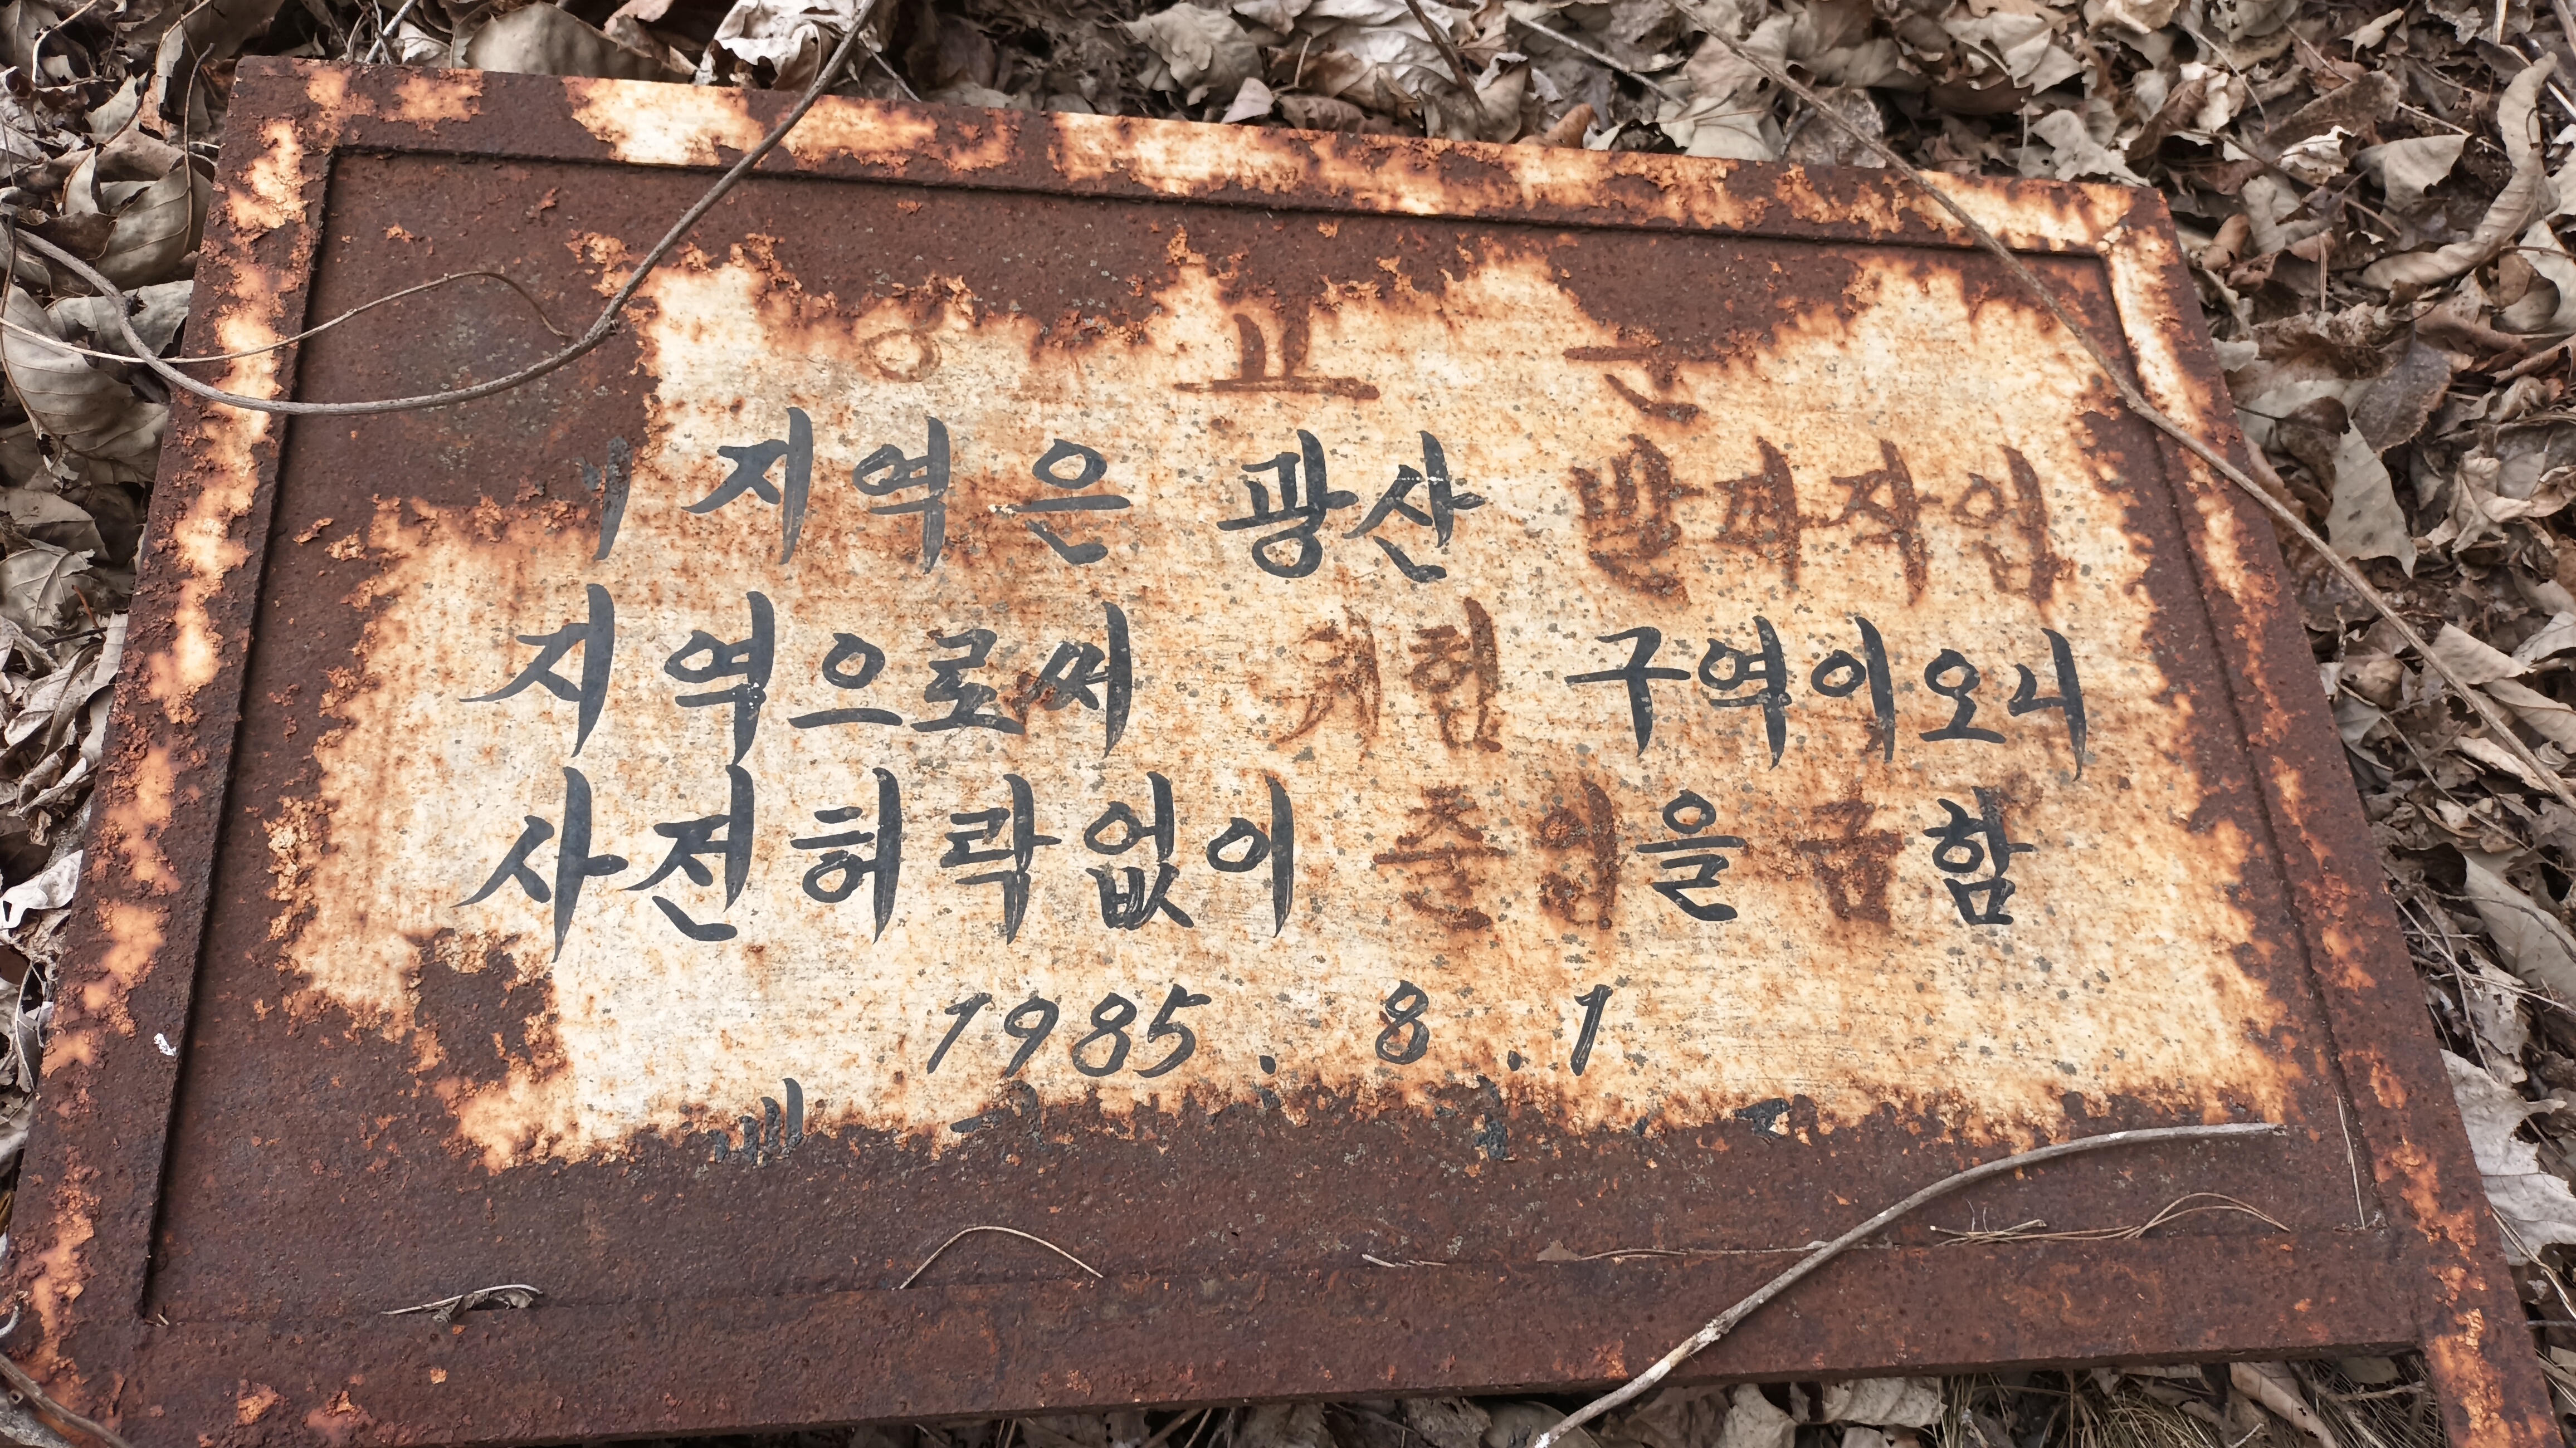 이 지역은 광산 발파작업
지역으로써 위험 구역이오니
사전허락없이 출입을 금함
1985. 8. 1